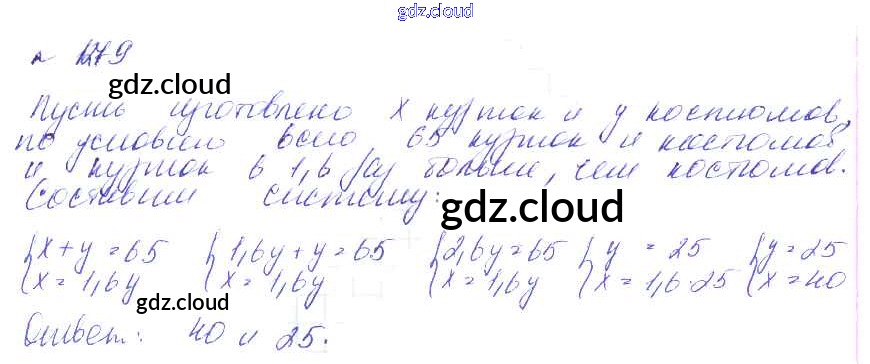 gdz.cloud
№ 1279
gdz.cloud
Пусть изготовлено x курток и y костюмов,
по условию всего 65 курток и костюмов
и курток в 1,6 раз больше, чем костюмов.
Составим систему:
gdz.cloud
{x + y = 65 {1,6y + y = 65 {2,6y = 65 {y = 25 {y = 25
{x = 1,6y {x = 1,6y {x = 1,6y {x = 1,6·25 {x = 40
gdz.cloud
Ответ: 40 и 25.
gdz.cloud